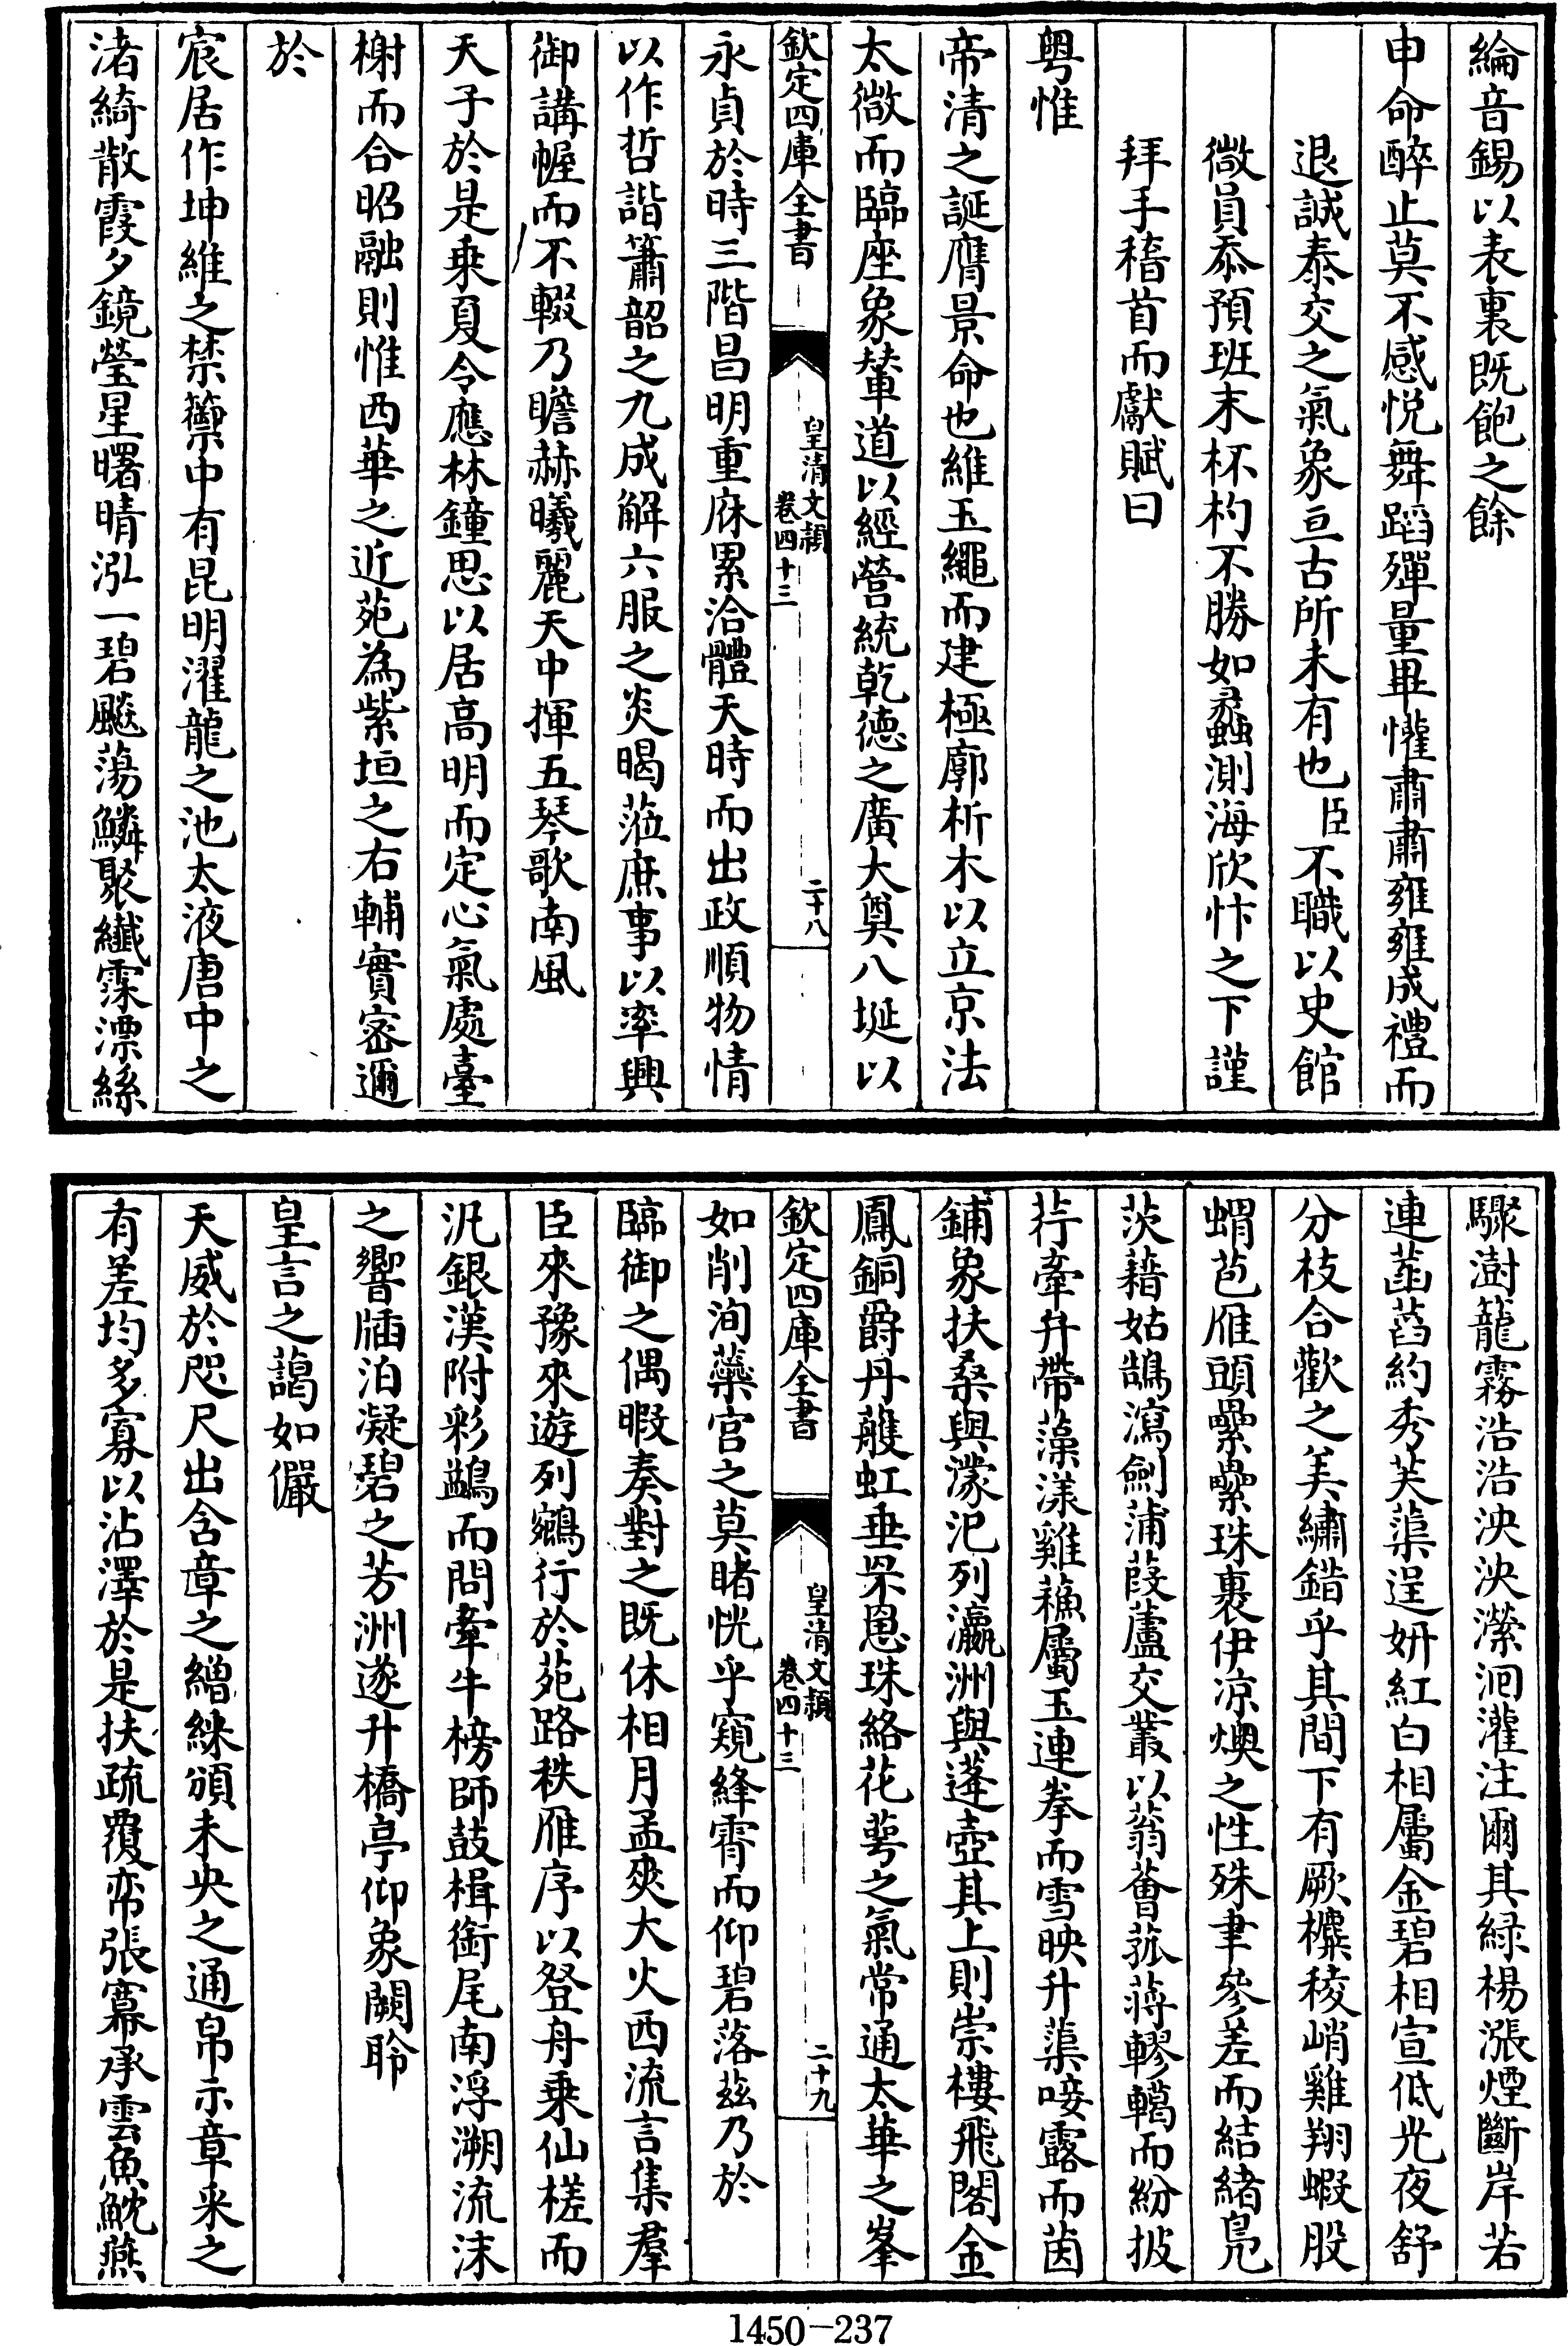 綸音錫以表裏既飽之餘
申命醉止莫不感悦舞蹈殫量畢懽肅肅雍雍成禮而
退誠泰交之氣象亘古所未有也臣不職以史館
微員忝預班末杯杓不勝如蠡測海欣忭之下謹
拜手稽首而獻賦曰
粤惟
帝清之誕膺景命也維玉繩而建極廓析木以立京法
太微而臨座象輦道以經營統乾德之廣大奠八埏以
欽定四庫全書
皇清文穎
卷四十三
二十八
永貞於時三階昌明重庥累洽體天時而出政順物情
以作哲諧簫韶之九成解六服之炎暍蒞庶事以率興
御講幄而不輟乃瞻赫曦麗天中揮五琴歌南風
天子於是乗夏令應林鐘思以居高明而定心氣處臺
榭而合昭融則惟西華之近苑為紫垣之右輔實密邇
於
宸居作坤維之禁籞中有昆明濯龍之池太液唐中之
渚綺散霞夕鏡瑩星曙晴泓一碧颷蕩鱗聚纖霂漂絲
驟澍籠霧浩浩泱泱瀠洄灌注爾其緑楊漲煙斷岸若
連菡萏約秀芙蕖逞妍紅白相屬金碧相宣低光夜舒
分枝合歡之美繡錯乎其間下有厥櫫稜峭雞翔蝦股
蝟苞雁頭纍纍珠裏伊凉燠之性殊聿參差而結緒鳬
茨藉姑鵠瀉劍蒲葭蘆交叢以蓊薈菰蔣轇轕而紛披
荇牽升帶藻漾雞蘓屬玉連拳而雪映升蕖唼露而茵
鋪象扶桑與濛汜列瀛洲與蓬壺其上則崇樓飛閣金
鳳銅爵丹雘虹垂罘罳珠絡花萼之氣常通太華之峯
欽定四庫全書
皇清文穎
卷四十三
二十九
如削洵蘂宫之莫睹恍乎窺絳霄而仰碧落兹乃於
臨御之偶暇奏對之既休相月孟夾大火西流言集羣
臣來豫來遊列鵷行於苑路秩雁序以登舟乗仙槎而
汎銀漢附彩鷁而問牽牛榜師鼓楫銜尾南浮溯流沫
之響牐泊凝碧之芳洲遂升橋亭仰象闕聆
皇言之藹如儼
天威於咫尺出含章之繒綵頒未央之通帛示章采之
有差均多寡以沾澤於是扶疏覆帟張幕承雲魚鮵燕
1450-237